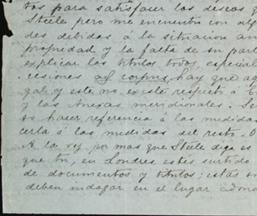 tos para satisfacer los deseos
Steele pero me encuentro con
des debidas á la situacion
propiedad y la falta de su
explicar los titulos todos,
cesiones ad corpus, hay que
y este no existe respecto á
y las Anexas meridionales.
hacer referencia á las medidas
cerla á las medidas del resto.
A. la vez, por mas que Steele diga
que tu, en Londres estas surtido
de documentos y titulos; estas
deben indagar en el lugar